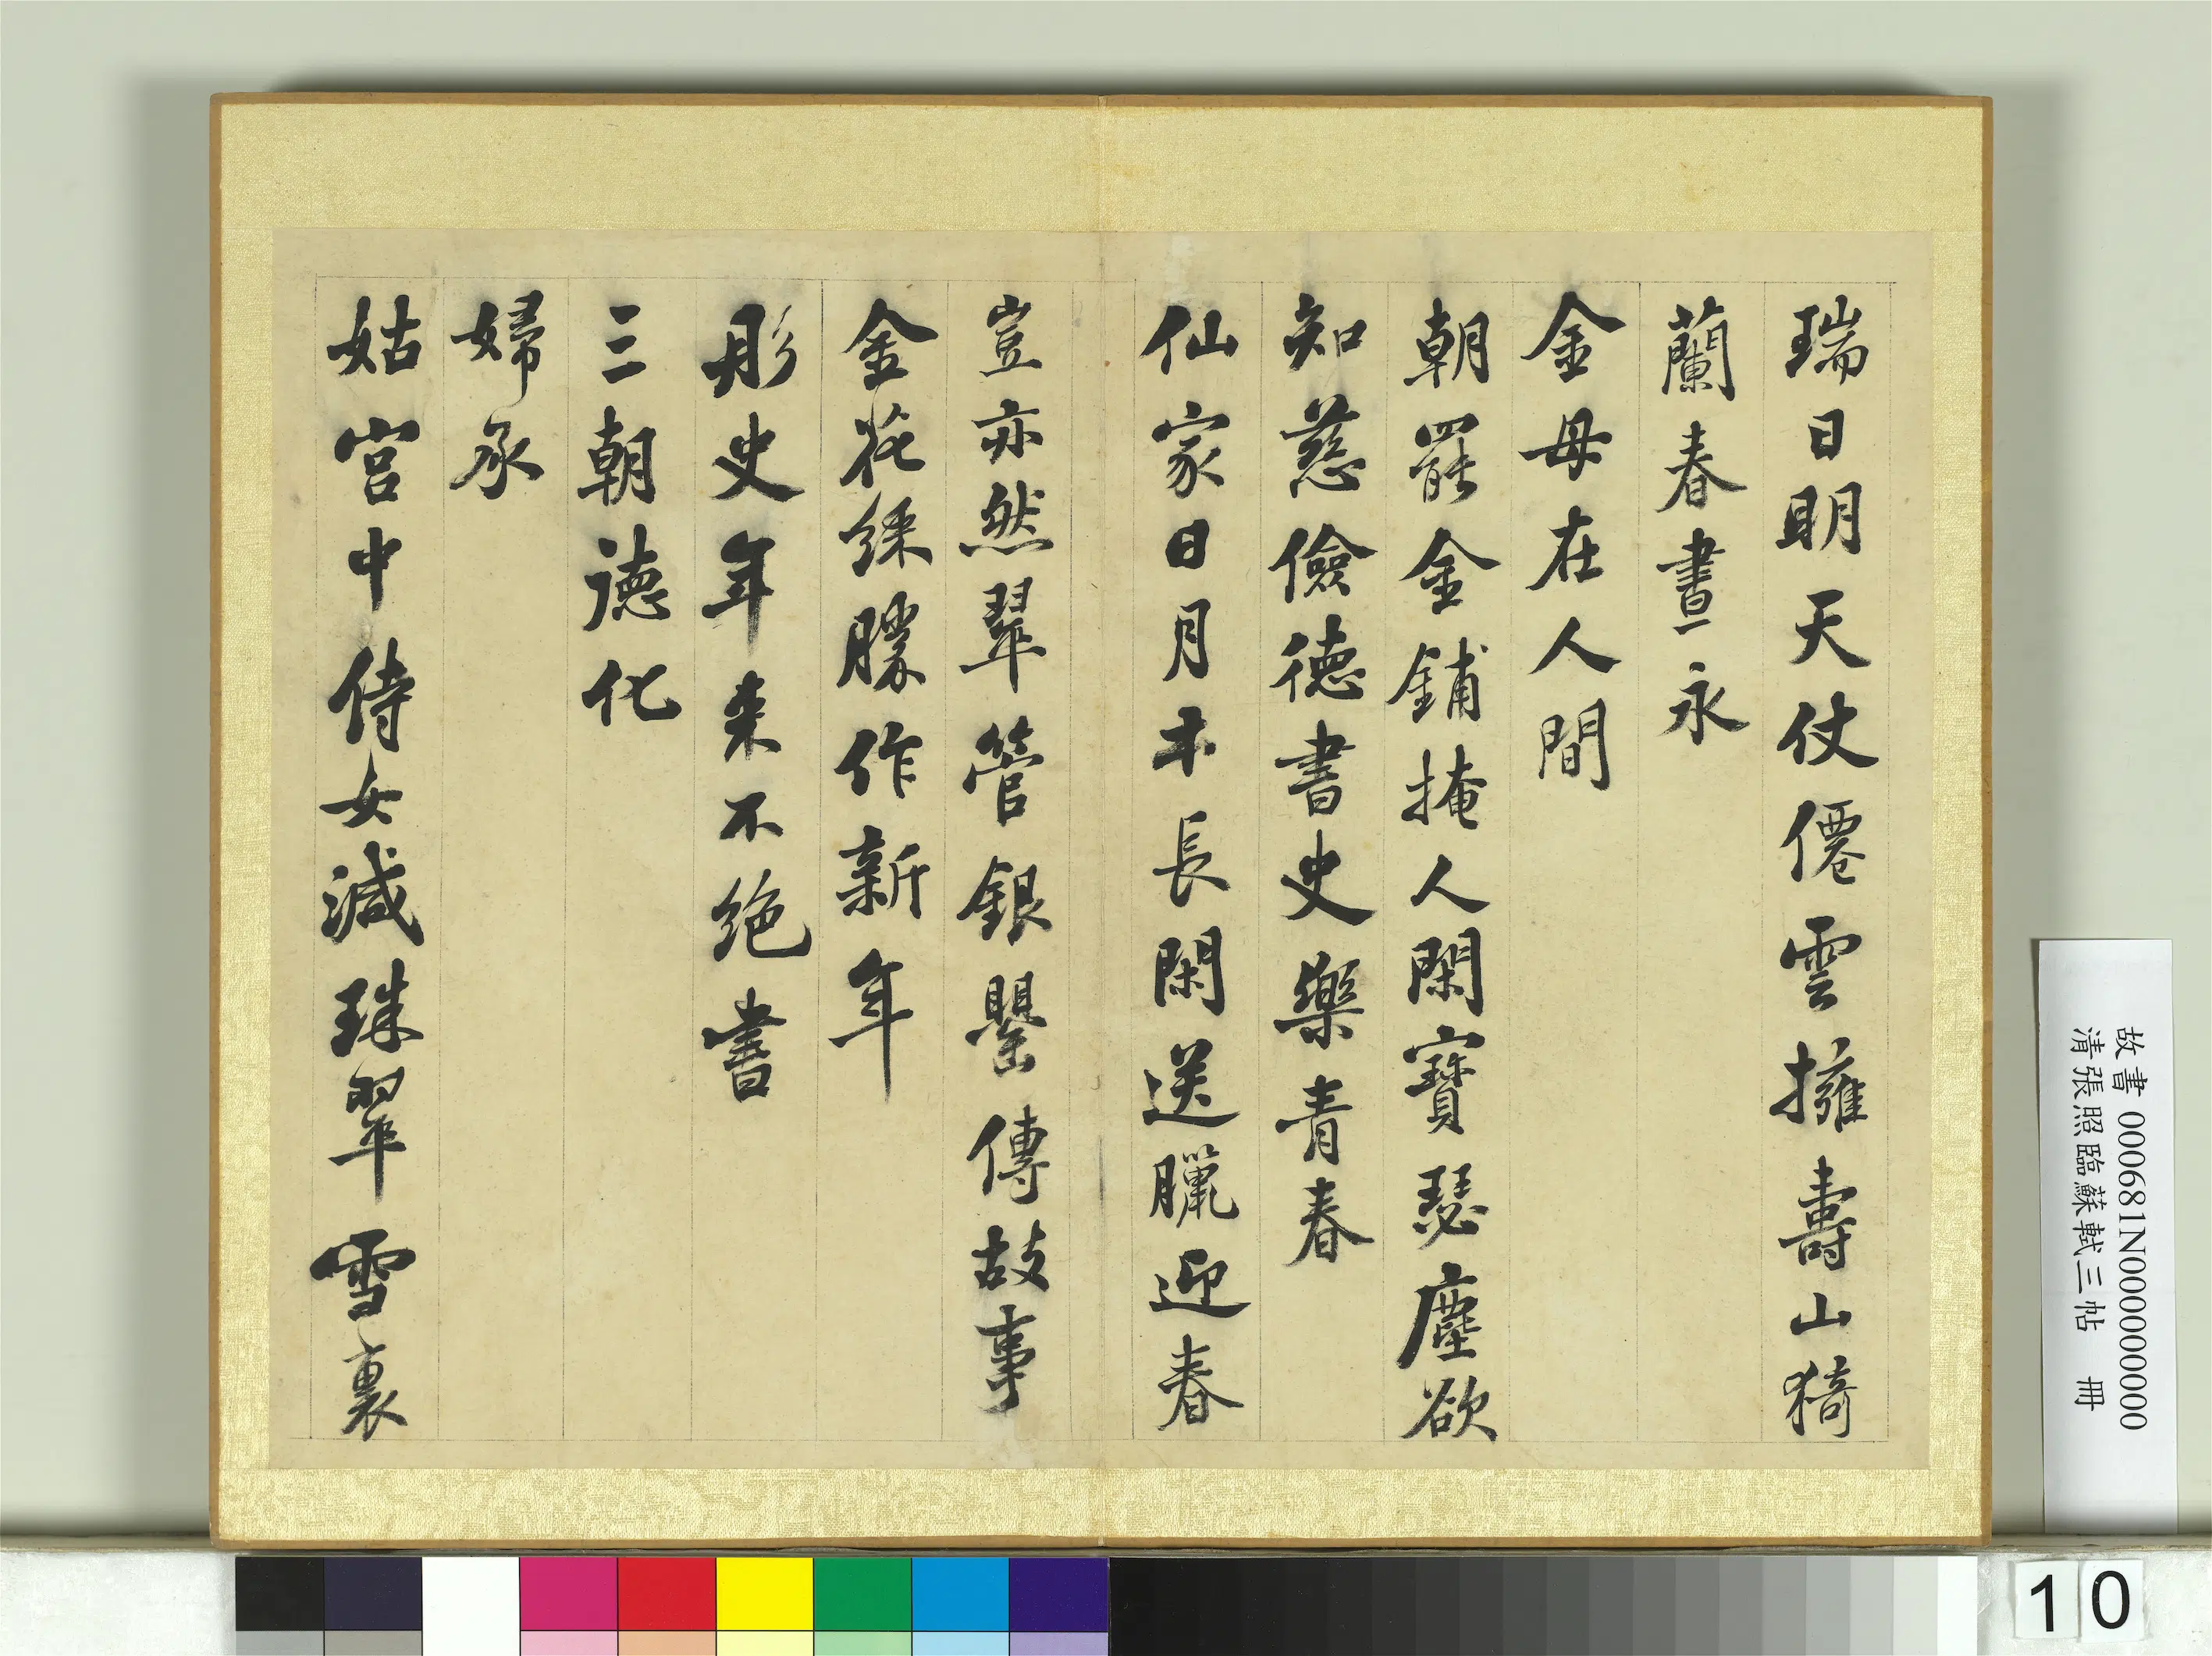 瑞日明天仗僊雲擁壽山猗
蘭春晝永
金母在人間
朝罷金鋪掩人閑寶瑟塵欲
知慈儉德書史樂青春
仙家日月本長閑送臘迎春
豈亦然翠管銀罌傳故事
金花綵勝作新年
彤史年来不绝書
三朝德化
婦承
姑宮中侍女減珠翠雪裏
故書 000681N000000000
清張照臨蘇軾三帖 冊
10